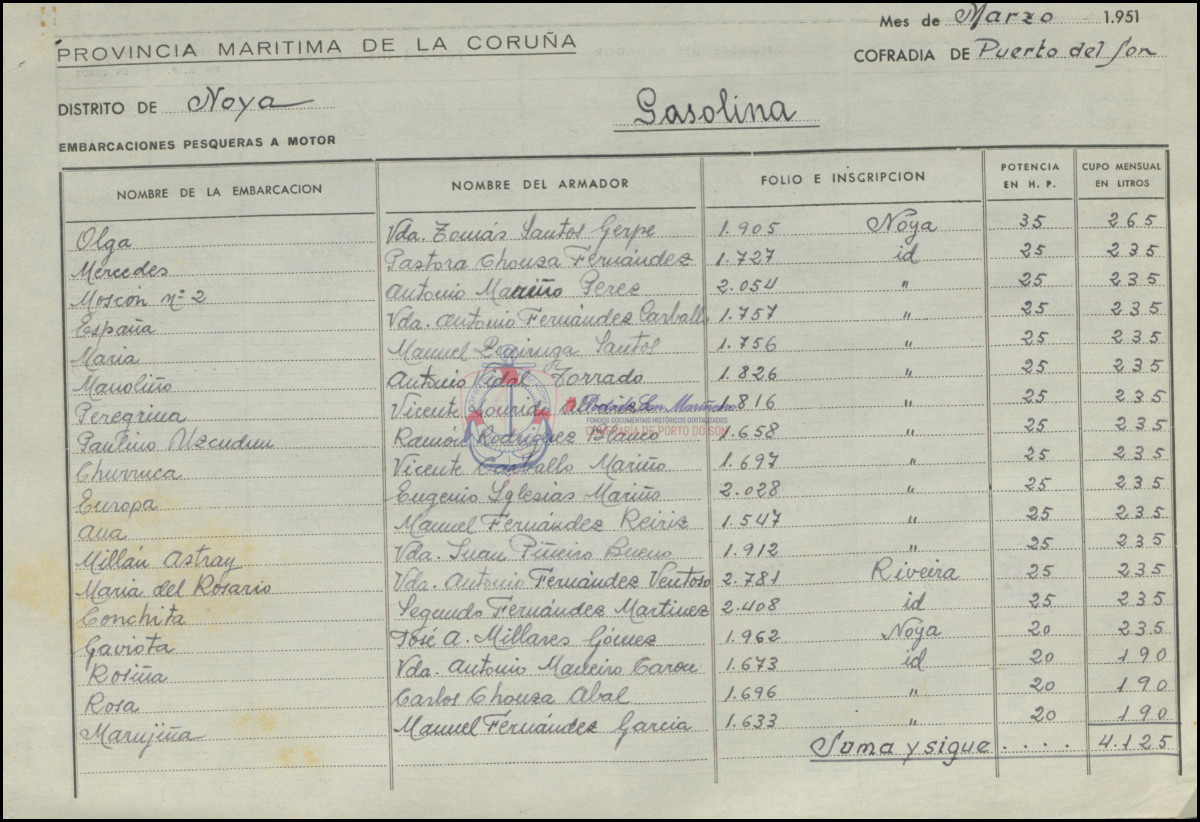 Mes de Marzo 1.951
PROVINCIA MARITIMA DE LA CORUÑA
COFRADIA DE Puerto del Son
DISTRITO DE Noya
Gasolina
EMBARCACIONES PESQUERAS A MOTOR
NOMBRE DE LA EMBARCACION NOMBRE DEL ARMADOR FOLIO E INSCRIPCION POTENCIA EN H. P. CUPO MENSUAL EN LITROS
Olga Vda. Tomás Santos Gerpe 1.905 Noya 35 265
Mercedes Pastora Chouza Fernández 1.727 id 25 235
Moscón nº 2 Antonio Mariño Perez 2.054 " 25 235
España Vda. Antonio Fernández Carballo 1.757 " 25 235
Maria Manuel Santos 1.756 " 25 235
Manoliño Antonio Vidal Torrado 1.826 " 25 235
Peregrina Vicente 1.816 " 25 235
Paulino Uzcudun Ramón Rodriguez Blanco 1.658 " 25 235
Churruca Vicente Carballo Mariño 1.697 " 25 235
Europa Eugenio Yglesias Mariño 2.028 " 25 235
Ana Manuel Fernández Reiriz 1.547 " 25 235
Millán Astray Vda. Juan Piñeiro Bueno 1.912 " 25 235
Maria del Rosario Vda. Antonio Fernández Ventoso 2.781 Riveira 25 235
Conchita Segundo Fernández Martinez 2.408 id 25 235
Gaviota José A. Millares Gómez 1.962 Noya 20 235
Rosiña Vda. Antonio Maneiro 1.673 id 20 190
Rosa Carlos Chouza Abal 1.696 " 20 190
Marujiña Manuel Fernández Garcia 1.633 " 20 190
Suma y sigue . . . . 4.125
FONDOS DOCUMENTAIS HISTÓRICOS DIGITALIZADOS
CONFRARÍA DE PORTO DO SON